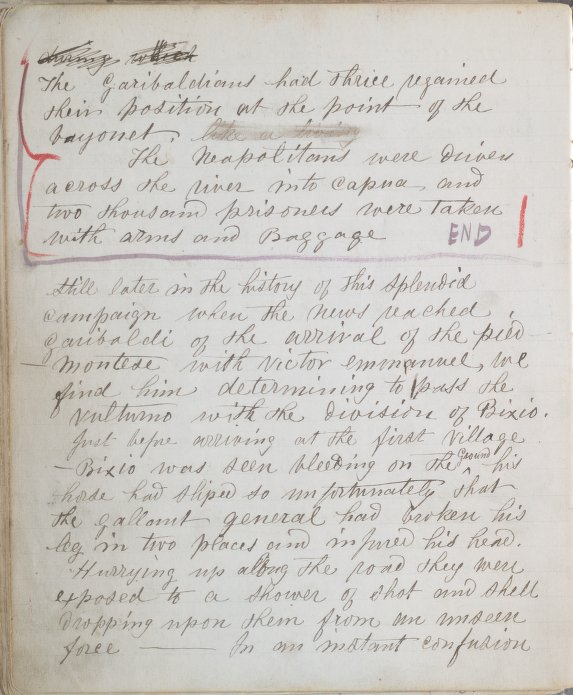 during which
The Garibaldians had thrice regained
their position at the point of the
bayonet. like a living
The Neapolitans were driven
across the river into Capua, and
two thousand prisoners were taken
with arms and Baggage END
Still later in the history of this splendid
campaign when the news reached
Garibaldi of the arrival of the pied-
-montese with Victor emmanuel, we
find him determining to pass the
Vulturno with the division of Bixio.
Just before arriving at the first Village
- Bixio was seen bleeding on the ground his
horse had sliped so unfortunately that
the gallant general had broken his
leg in two places and injured his head.
Hurrying up along the road they were
exposed to a shower of shot and shell
dropping upon them from an unseen
force — In an instant confusion